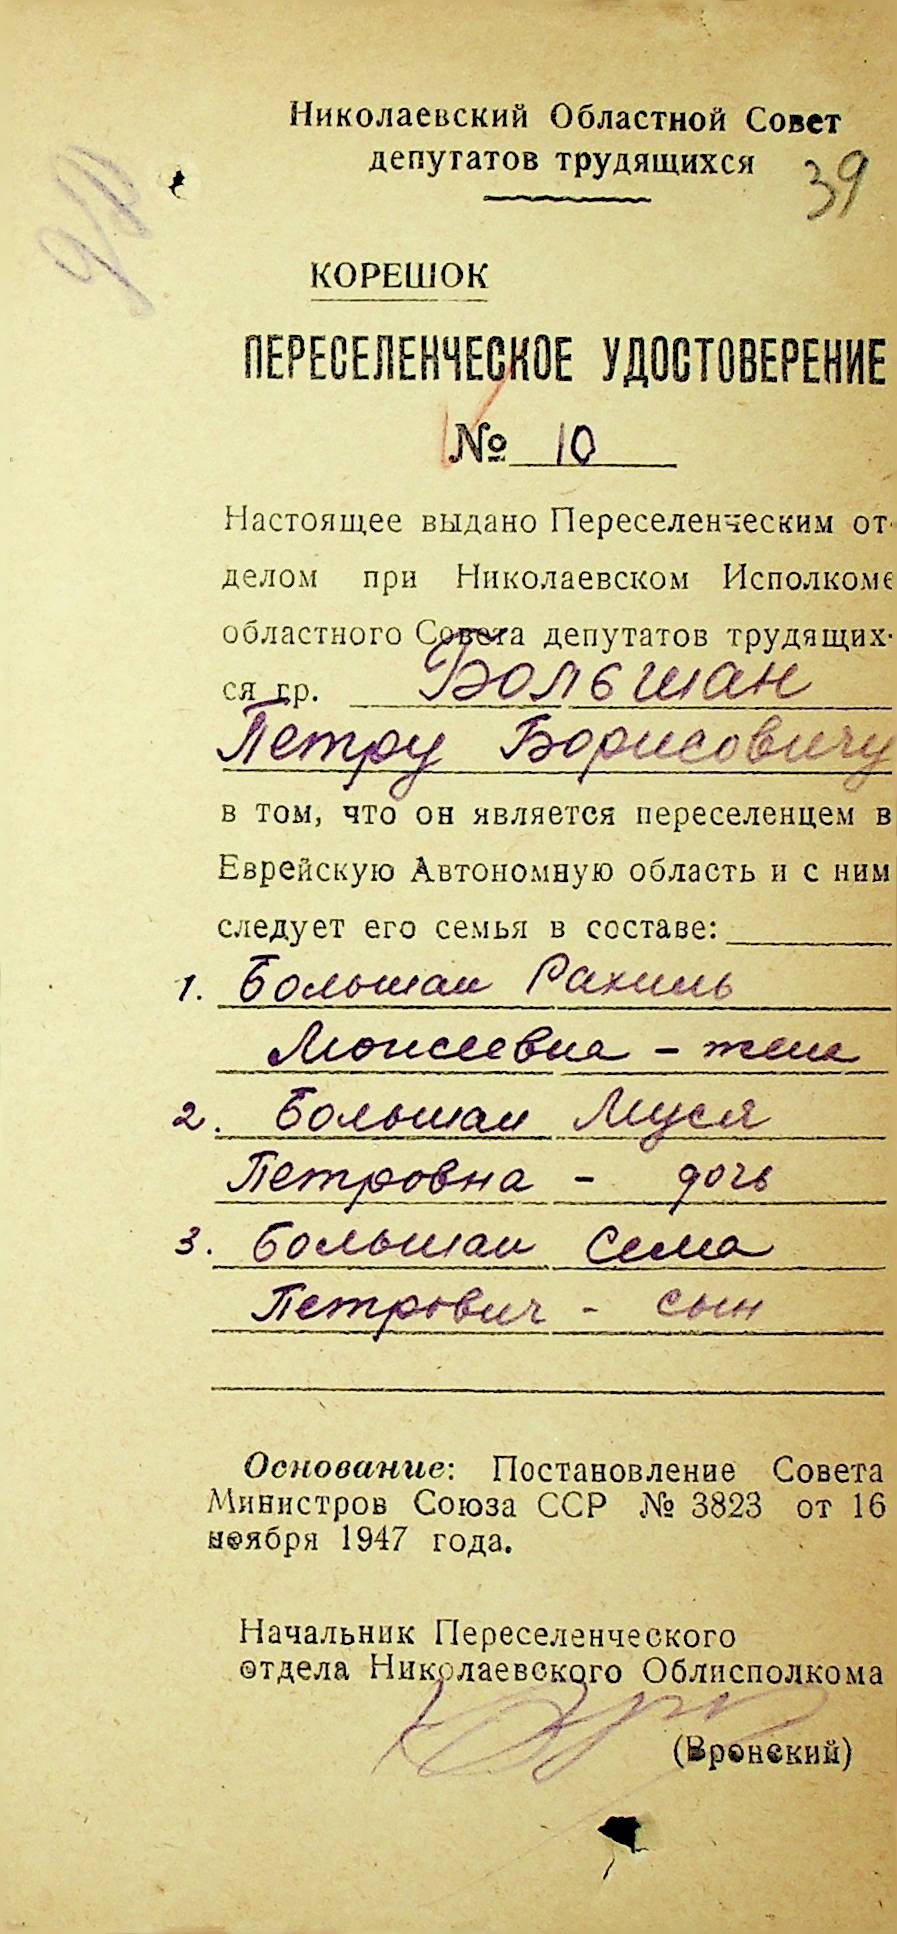 Николаевский Областной Совет
депутатов трудящихся
39
КОРЕШОК
ПЕРЕСЕЛЕНЧЕСКОЕ УДОСТОВЕРЕНИЕ
№ 10
Настоящее выдано Переселенческим от-
делом при Николаевском Исполкоме
областного Совета депутатов трудящих-
ся гр. Большан
Петру Борисовичу
в том, что он является переселенцем в
Еврейскую Автономную область и с ним
следует его семья в составе:
1. Большан Рахиль
Моисеевна - жена
2. Большан Муся
Петровна - дочь
3. Большан Сема
Петрович - сын
Основание: Постановление Совета
Министров Союза ССР № 3823 от 16
ноября 1947 года.
Начальник Переселенческого
отдела Николаевского Облисполкома
(Вронский)